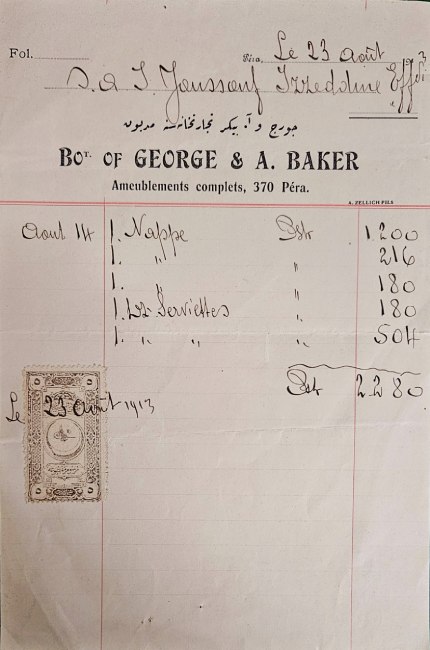 Fol.
Péra, Le 23 Août 3
S. A. I. Youssouf Izzeddine Effdi
جورج و آ. بيكر تجارتخانه‌سنه مديون
Bot. OF GEORGE & A. BAKER
Ameublements complets, 370 Péra.
A. ZELLICH FILS
Aout 14 1. Nappe Pstr 1.200
1. " " 216
1. " " 180
1. Dz Serviettes " 180
1. " " " 504
Pstr 2.280
Le 23 Août 1913